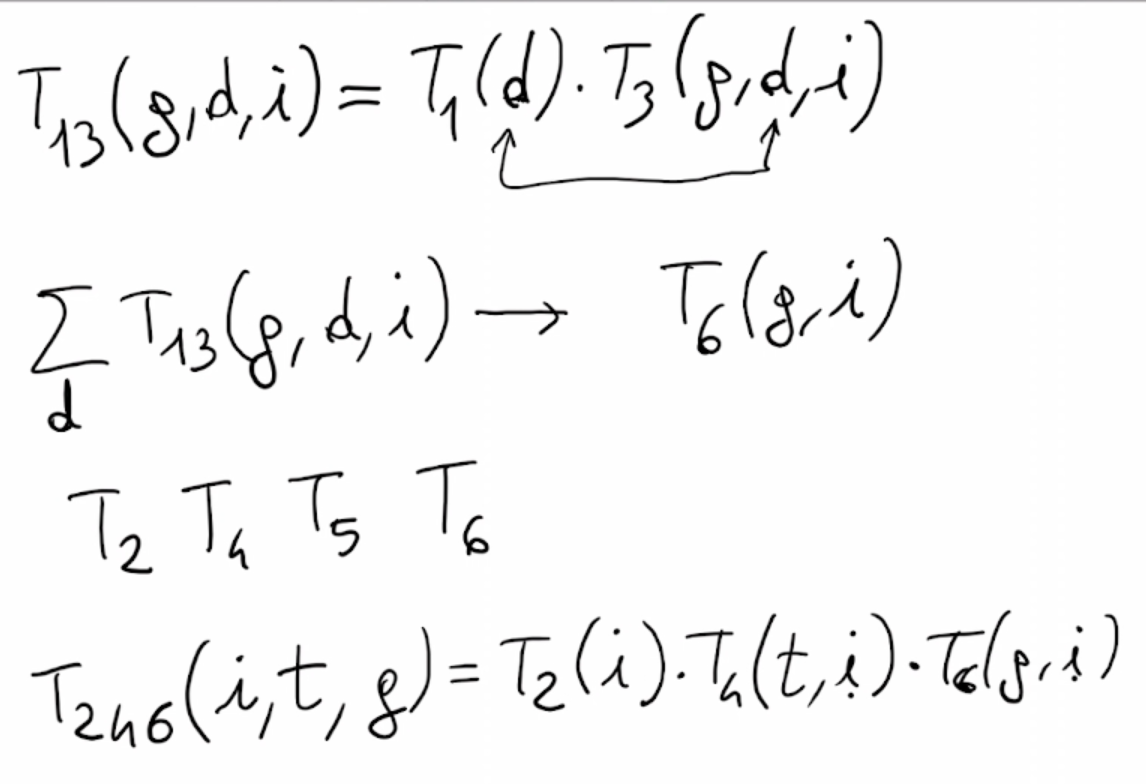 T₁₃(g,d,i) = T₁(d) · T₃(g,d,i)
∑_d T₁₃(g,d,i) → T₆(g,i)
T₂ T₄ T₅ T₆
T₂₄₆(i,t,g) = T₂(i) · T₄(t,i) · T₆(g,i)